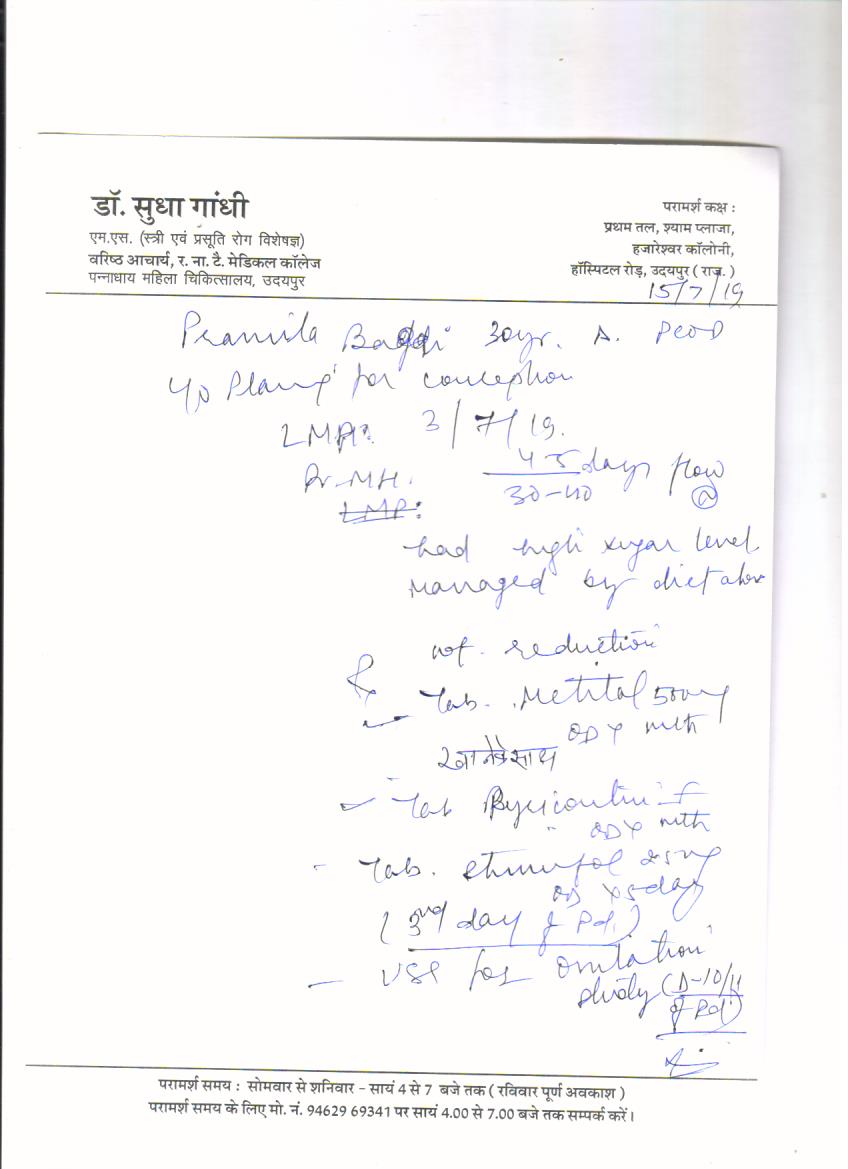 डॉ. सुधा गांधी
एम.एस. (स्त्री एवं प्रसूति रोग विशेषज्ञ)
वरिष्ठ आचार्य, र. ना. टै. मेडिकल कॉलेज
पन्नाधाय महिला चिकित्सालय, उदयपुर
परामर्श कक्ष :
प्रथम तल, श्याम प्लाजा,
हजारेश्वर कॉलोनी,
हॉस्पिटल रोड़, उदयपुर ( राज. )
15/7/19
Pramila 30yr. PCOD
for conception
3/7/19.
MH. 4-5 days flow
30-40 N
LMP:
had high sugar level
managed by diet
wt. reduction
Rx
Tab. 500mg
OD x mth
खाने के साथ
Tab
OD x mth
Tab. 25mg
OD x 5 day
(3rd day of Pd.)
- USG for ovulation
study (D-10/11
of Pd)
परामर्श समय : सोमवार से शनिवार - सायं 4 से 7 बजे तक ( रविवार पूर्ण अवकाश )
परामर्श समय के लिए मो. नं. 94629 69341 पर सायं 4.00 से 7.00 बजे तक सम्पर्क करें।